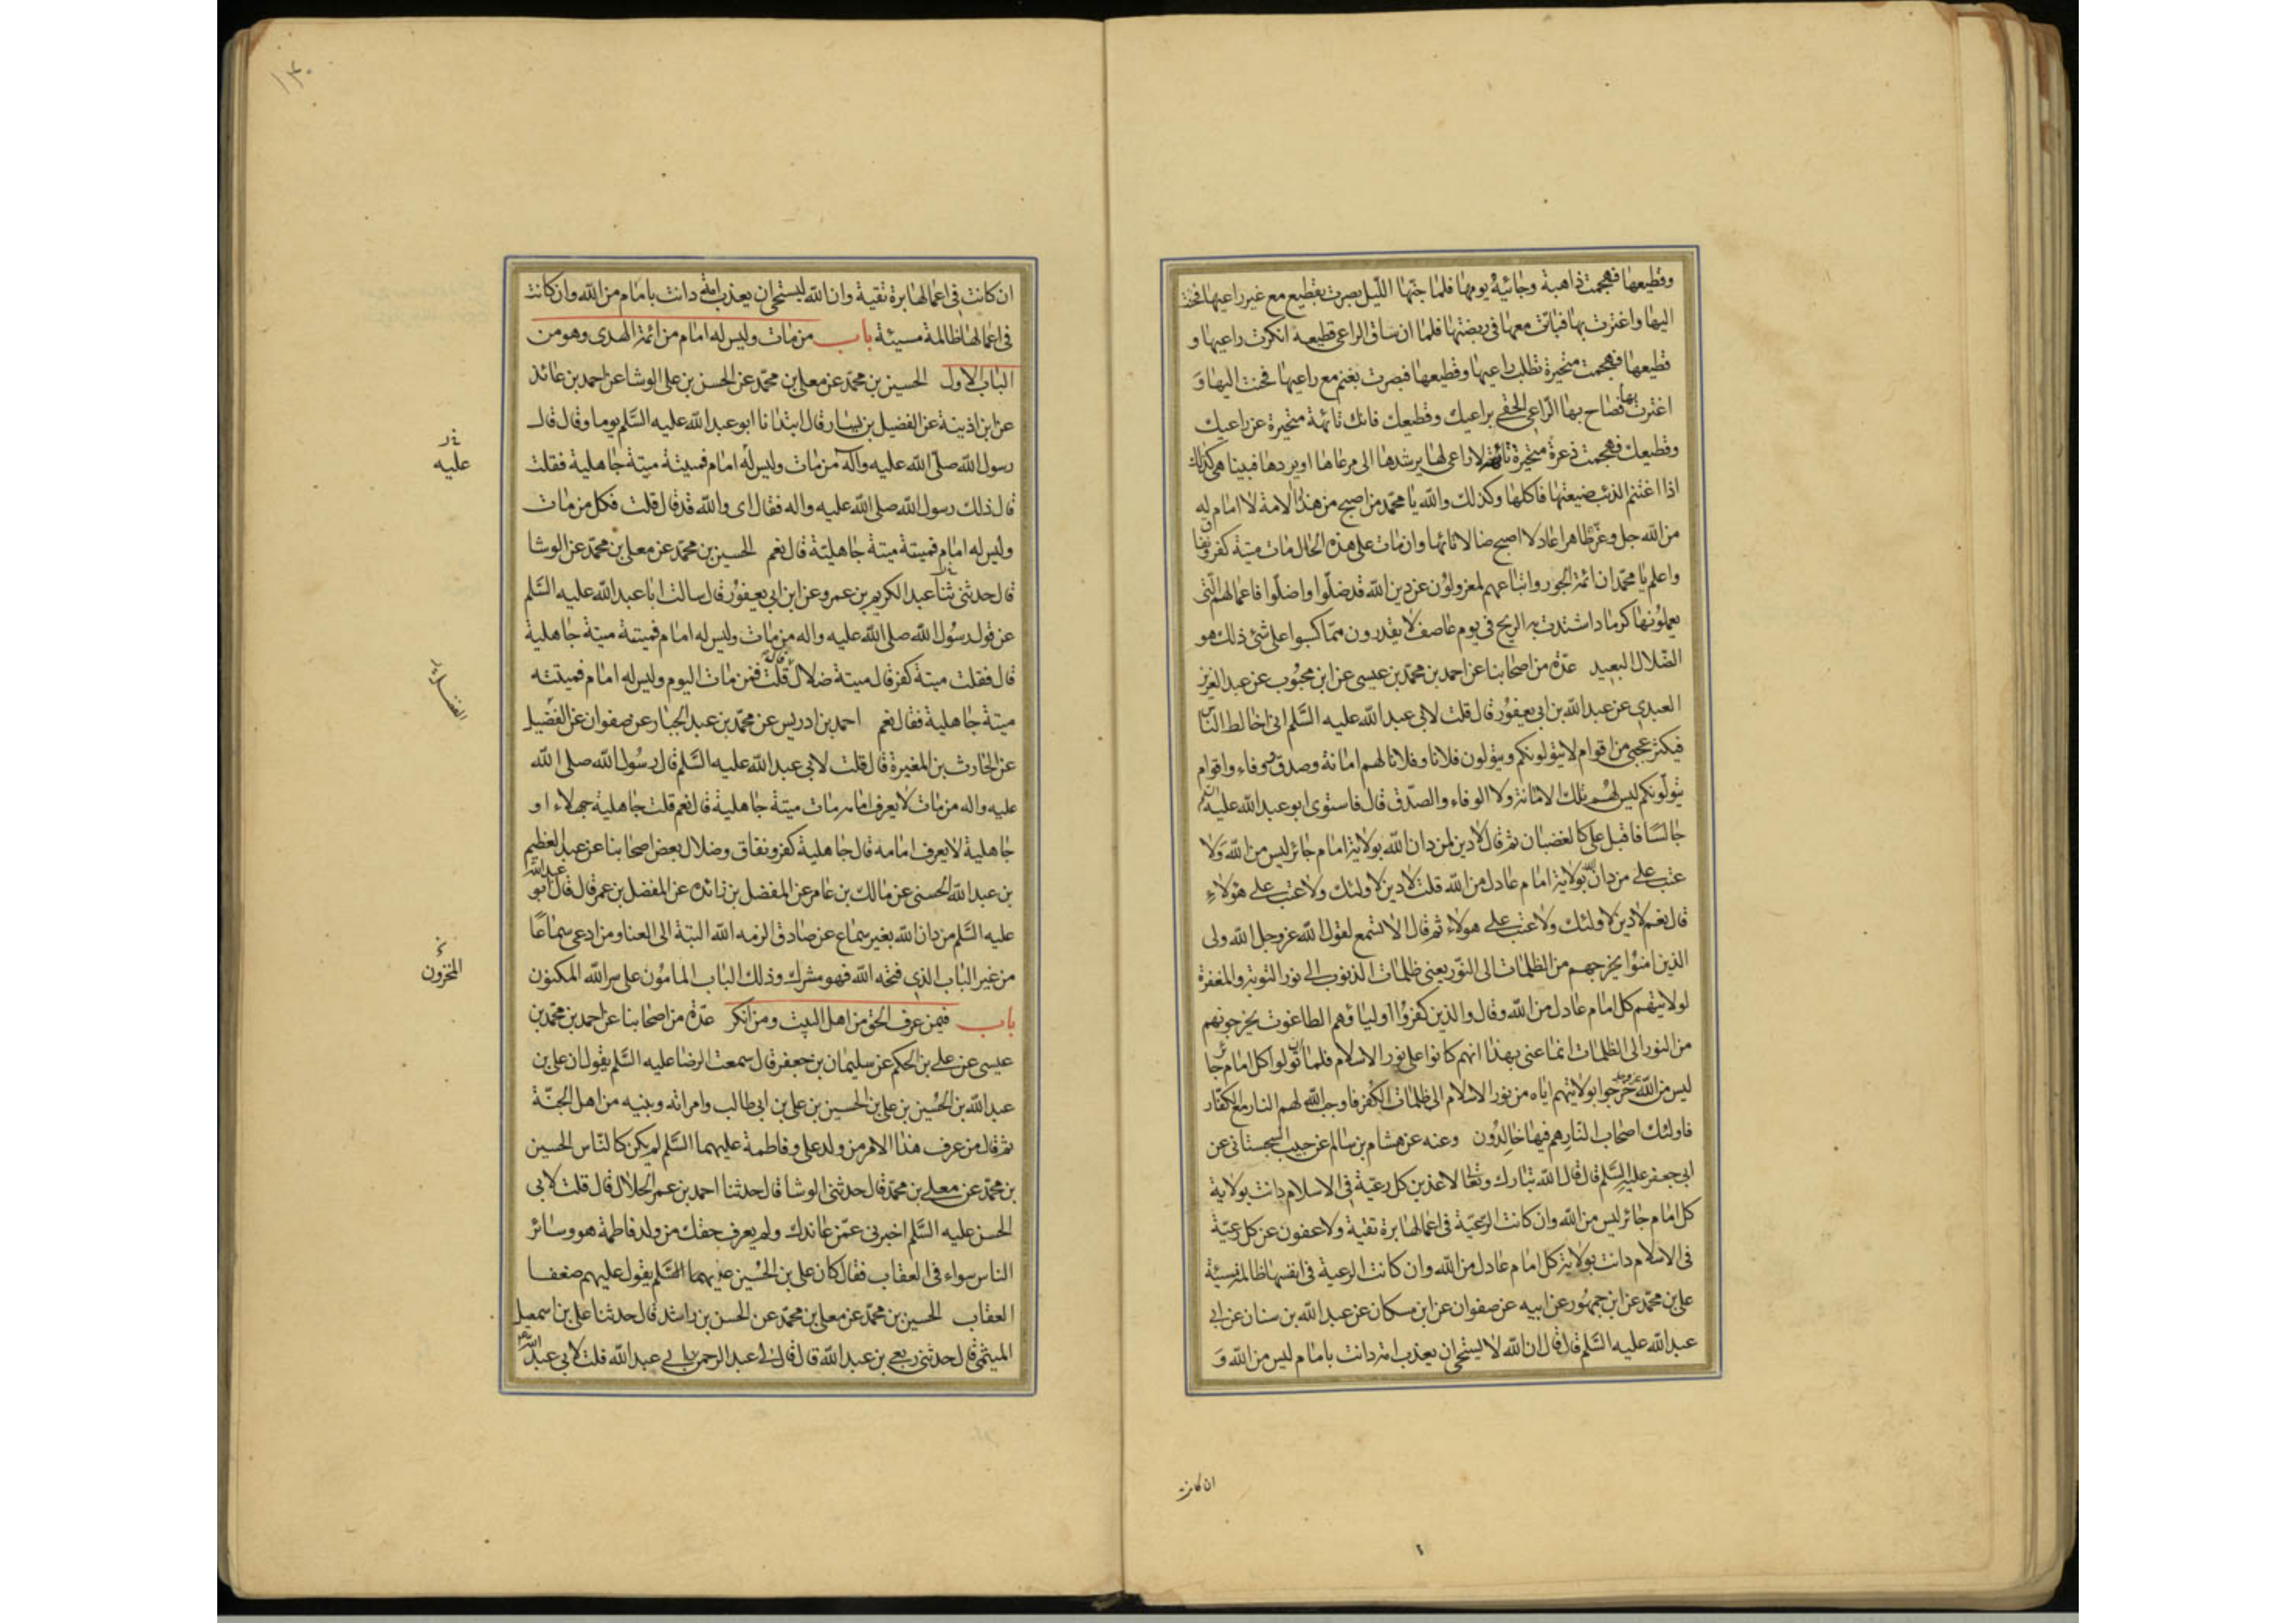 وقطيعها فهجمت ذاهبة وجائية يومها فلما جنها الليل بصرت بقطيع مع غير راعيها فحنت
اليها واغترت بها فباتت معها في ربضتها فلما ان ساق الراعي قطيعه انكرت راعيها و
قطيعها فهجمت متحيرة تطلب راعيها وقطيعها فبصرت بغنم مع راعيها فحنت اليها وَ
اغترت بها فصاح بها الراعي الحقي براعيك وقطيعك فانك تائهة متحيرة عن راعيك
وقطيعك فهجمت ذعرة متحيرة تائهة لا راعي لها يرشدها الى مرعاها او يردها فبينا هي كذلك
اذا اغتنم الذئب ضيعتها فاكلها وكذلك والله يا محمد من اصبح من هذه الامة لا امام له
من الله جل وعز ظاهرا عادلا اصبح ضالا تائها وان مات على هذه الحال مات ميتة كفر ونفاق
واعلم يا محمد ان ائمة الجور واتباعهم لمعزولون عن دين الله قد ضلوا واضلوا فاعمالهم التي
يعملونها كرماد اشتدت به الريح في يوم عاصف لا يقدرون مما كسبوا على شئ ذلك هو
الضلال البعيد عدة من اصحابنا عن احمد بن محمد بن عيسى عن ابن محبوب عن عبد العزيز
العبدي عن عبد الله بن ابي يعفور قال قلت لابي عبد الله عليه السلم اني اخالط الناس
فيكثر عجبي من اقوام لا يتولونكم ويتولون فلانا وفلانا لهم امانة وصدق ووفاء واقوام
يتولونكم ليس لهم تلك الامانة ولا الوفاء والصدق قال فاستوى ابو عبد الله عليه السلم
جالسا فاقبل علي كالغضبان ثم قال لا دين لمن دان الله بولاية امام جائر ليس من الله وَلا
عتب على من دان الله بولاية امام عادل من الله قلت لا دين لاولئك ولا عتب على هؤلاءِ
قال نعم لا دين لاولئك ولا عتب على هولاء ثم قال الا تسمع لقول الله عز وجل الله ولى
الذين امنوا يخرجهم من الظلمات الى النور يعني ظلمات الذنوب الى نور التوبة والمغفرة
لولايتهم كل امام عادل من الله وقال والذين كفروا اولياؤهم الطاغوت يخرجونهم
من النور الى الظلمات انما عنى بهذا انهم كانوا على نور الاسلام فلما ان تولوا كل امام جائر
ليس من الله عز وجل خرجوا بولايتهم اياه من نور الاسلام الى ظلمات الكفر فاوجب الله لهم النار مع الكفار
فاولئك اصحاب النار هم فيها خالدون وعنه عن هشام بن سالم عن حبيب السجستاني عن
ابي جعفر عليه السلم قال قال الله تبارك وتعالى لاعذبن كل رعية في الاسلام دانت بولاية
كل امام جائر ليس من الله وان كانت الرعية في اعمالها برة تقية ولاعفون عن كل رعية
في الاسلام دانت بولاية كل امام عادل من الله وان كانت الرعية في انفسها ظالمة مسيئة
علي بن محمد عن ابن جمهور عن ابيه عن صفوان عن ابن مسكان عن عبد الله بن سنان عن ابي
عبد الله عليه السلم قال قال ان الله لا يستحي ان يعذب امة دانت بامام ليس من الله وَ
ان كانت
١٣٠
ان كانت في اعمالها برة تقية وان الله ليستحي ان يعذب امة دانت بامام من الله وان كانت
في اعمالها ظالمة مسيئة باب من مات وليس له امام من ائمة الهدى وهو من
الباب الاول الحسين بن محمد عن معلى بن محمد عن الحسن بن على الوشا عن احمد بن عائذ
عن ابن اذينة عن الفضيل بن يسار قال ابتدانا ابو عبد الله عليه السلم يوما وقال قال
رسول الله صلى الله عليه واله من مات وليس له امام فميتة ميتة جاهلية فقلت
قال ذلك رسول الله صلى الله عليه واله فقال اى والله قد قال قلت فكل من مات
وليس له امام فميتة ميتة جاهلية قال نعم الحسين بن محمد عن معلى بن محمد عن الوشا
قال حدثني ثنا عبد الكريم بن عمرو عن ابن ابي يعفور قال سالت ابا عبد الله عليه السلم
عن قول رسول الله صلى الله عليه واله من مات وليس له امام فميتة ميتة جاهلية
قال فقلت ميتة كفر قال ميتة ضلال قلت فمن مات اليوم وليس له امام فميتته
ميتة جاهلية فقال نعم احمد بن ادريس عن محمد بن عبد الجبار عن صفوان عن الفضيل
عن الحارث بن المغيرة قال قلت لابي عبد الله عليه السلم قال رسول الله صلى الله
عليه واله من مات لا يعرف امامه مات ميتة جاهلية قال نعم قلت جاهلية جهلاء او
جاهلية لا يعرف امامه قال جاهلية كفر ونفاق وضلال بعض اصحابنا عن عبد العظيم
بن عبد الله الحسنى عن مالك بن عامر عن المفضل بن زائدة عن المفضل بن عمر قال قال ابو عبد الله
عليه السلم من دان الله بغير سماع عن صادق الزمه الله البتة الى العنا ومن ادعى سماعًا
من غير الباب الذى فتحه الله فهو مشرك وذلك الباب المامون على سر الله المكنون
باب فيمن عرف الحق من اهل البيت ومن انكر عدة من اصحابنا عن احمد بن محمد بن
عيسى عن على بن الحكم عن سليمان بن جعفر قال سمعت الرضا عليه السلم يقول ان على بن
عبد الله بن الحسين بن على بن الحسين بن على بن ابي طالب وامراته وبنيه من اهل الجنة
ثم قال من عرف هذا الامر من ولد على وفاطمة عليهما السلم لم يكن كالناس الحسين
بن محمد عن معلى بن محمد قال حدثنى الوشا قال حدثنا احمد بن عمر الحلال قال قلت لابى
الحسن عليه السلم اخبرنى عمن عاندك ولم يعرف حقك من ولد فاطمة هو وسائر
الناس سواء فى العقاب فقال كان على بن الحسين عليهما السلم يقول عليهم ضعفا
العقاب الحسين بن محمد عن معلى بن محمد عن الحسن بن راشد قال حدثنا على بن اسمعيل
الميثمى قال حدثنى ربعى بن عبد الله قال قال لى عبد الرحمن بن ابى عبد الله قلت لابى عبد الله
عليه
المخزون